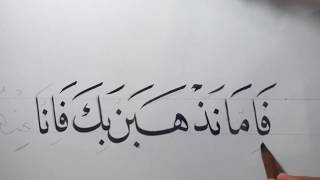 فَاِمَا نَذْهَبَن بَكَ فَانا